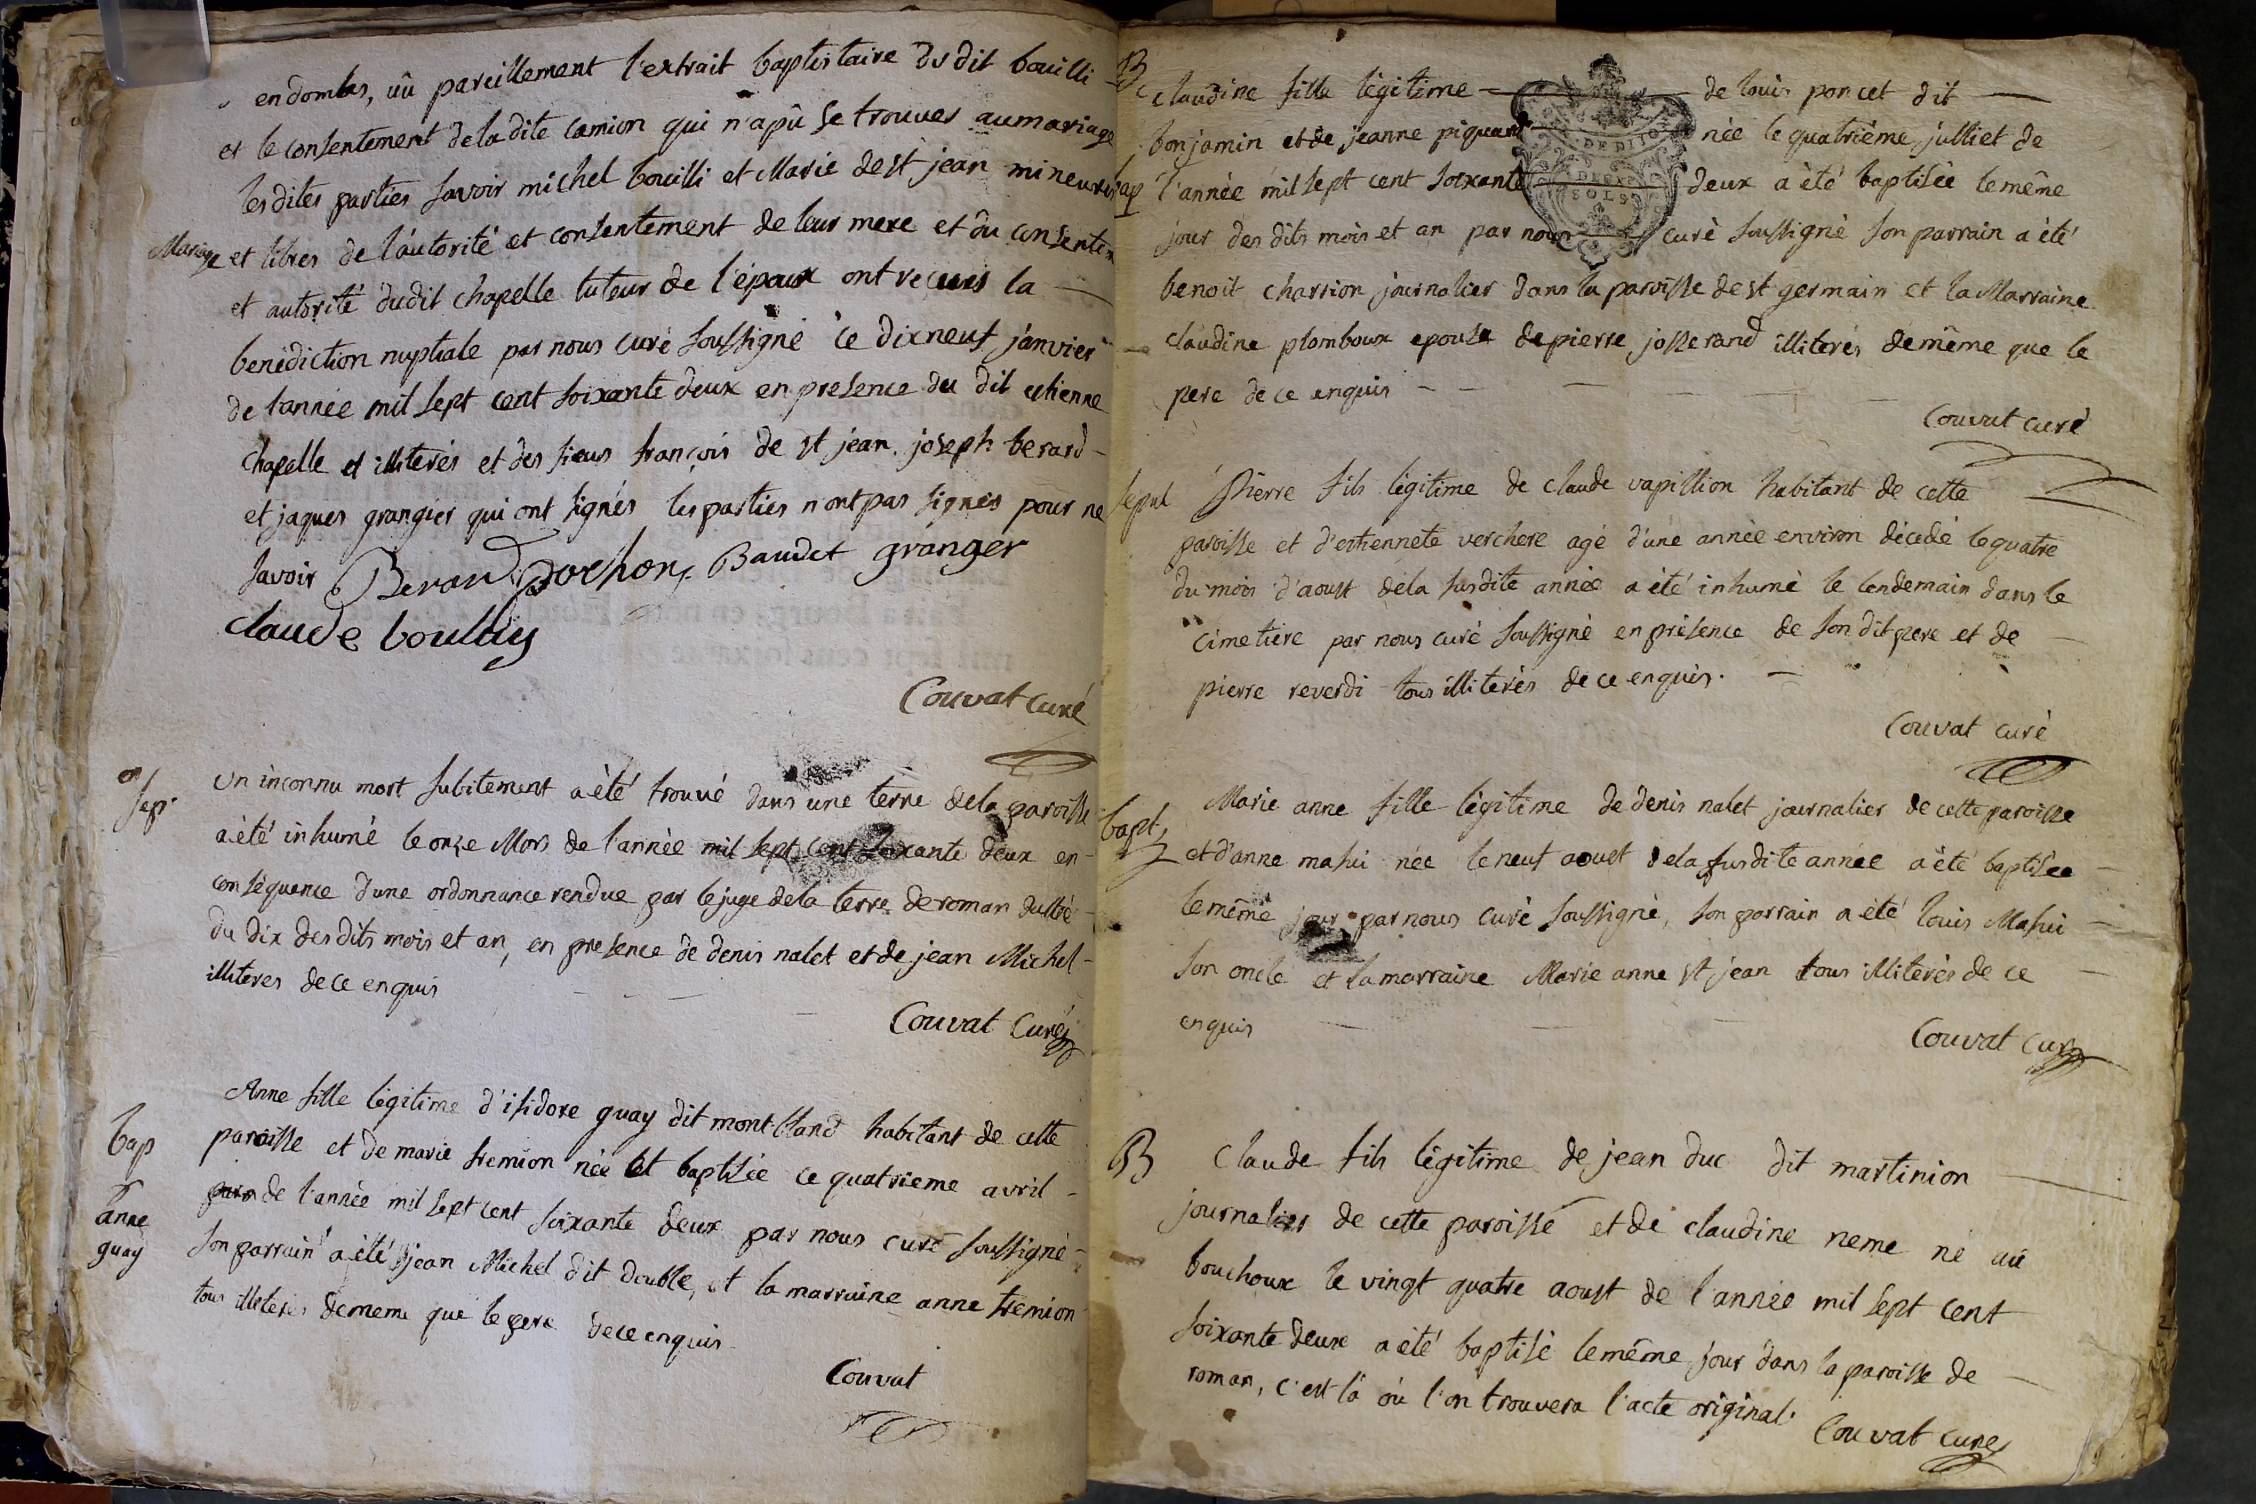 en dombes, vû pareillement l'extrait baptistaire du dit bouilli
et le consentement de la dite camion qui n'a pû se trouver au mariage
les dites parties savoir michel bouilli et Marie de st jean mineurs
Mariage
et libres de l'autorité et consentement de leur mere et du consentem
et autorité du dit chapelle tuteur de l'époux ont recues la
benediction nuptiale par nous curé soussigné ce dix neuf janvier
de l'année mil sept cent soixante deux en presence du dit etienne
chapelle et illiterés et des sieurs françois de st jean joseph berard
et jaques grangier qui ont signés les parties n'ont pas signés pour ne
savoir Berard Dochon Baudet granger
claude boulay
Couvat curé
sep.
un inconnu mort subitement a été trouvé dans une terre de la paroisse
a été inhumé le onze Mars de l'année mil sept cent soixante deux en
conséquence d'une ordonnance rendue par le juge de la terre de roman
du dix des dits mois et an, en presence de denis nalet et de jean Michel
illiteres de ce enquis
Couvat Curé
bap
anne
guay
Anne fille légitime d'isidore guay dit mont bland habitant de cette
paroisse et de marie tremion née et baptisée ce quatrieme avril
de l'année mil sept cent soixante deux par nous curé soussigné
son parrain a été jean Michel dit double, et la marraine anne tremion
tous illiteres de meme que le pere de ce enquis
Couvat
B
bap
claudine fille légitime de louis poncet dit
bonjamin et de jeanne piquand née le quatrième julliet de
l'année mil sept cent soixante deux a été baptisée le même
jour des dits mois et an par nous curé soussigné son parrain a été
benoit charrion journalier dans la paroisse de st germain et la Marraine
claudine plomboux epouse de pierre josserand illiterés de même que le
pere de ce enquis
Couvat curé
DE DIJON
DEUX
SOLS
sepul
Pierre fils légitime de claude vapillion habitant de cette
paroisse et d'estiennete verchere agé d'une année environ décédé le quatre
du mois d'aoust de la susdite année a été inhumé le lendemain dans le
cimetiere par nous curé soussigné en présence de son dit pere et de
pierre reverdi tous illiterés de ce enquis.
Couvat curé
bapt
Marie anne fille légitime de denis nalet journalier de cette paroisse
et d'anne mahui née le neuf aoust de la susdite année a été baptisée
le même jour par nous curé soussigné, son parrain a été louis Mahui
son oncle et la marraine Marie anne st jean tous illiterés de ce
enquis
Couvat curé
B
Claude fils légitime de jean duc dit martinion
journalier de cette paroisse et de claudine neme né au
bouchoux le vingt quatre aoust de l'année mil sept cent
soixante deux a été baptisé le même jour dans la paroisse de
roman, c'est là où l'on trouvera l'acte original.
Couvat curé